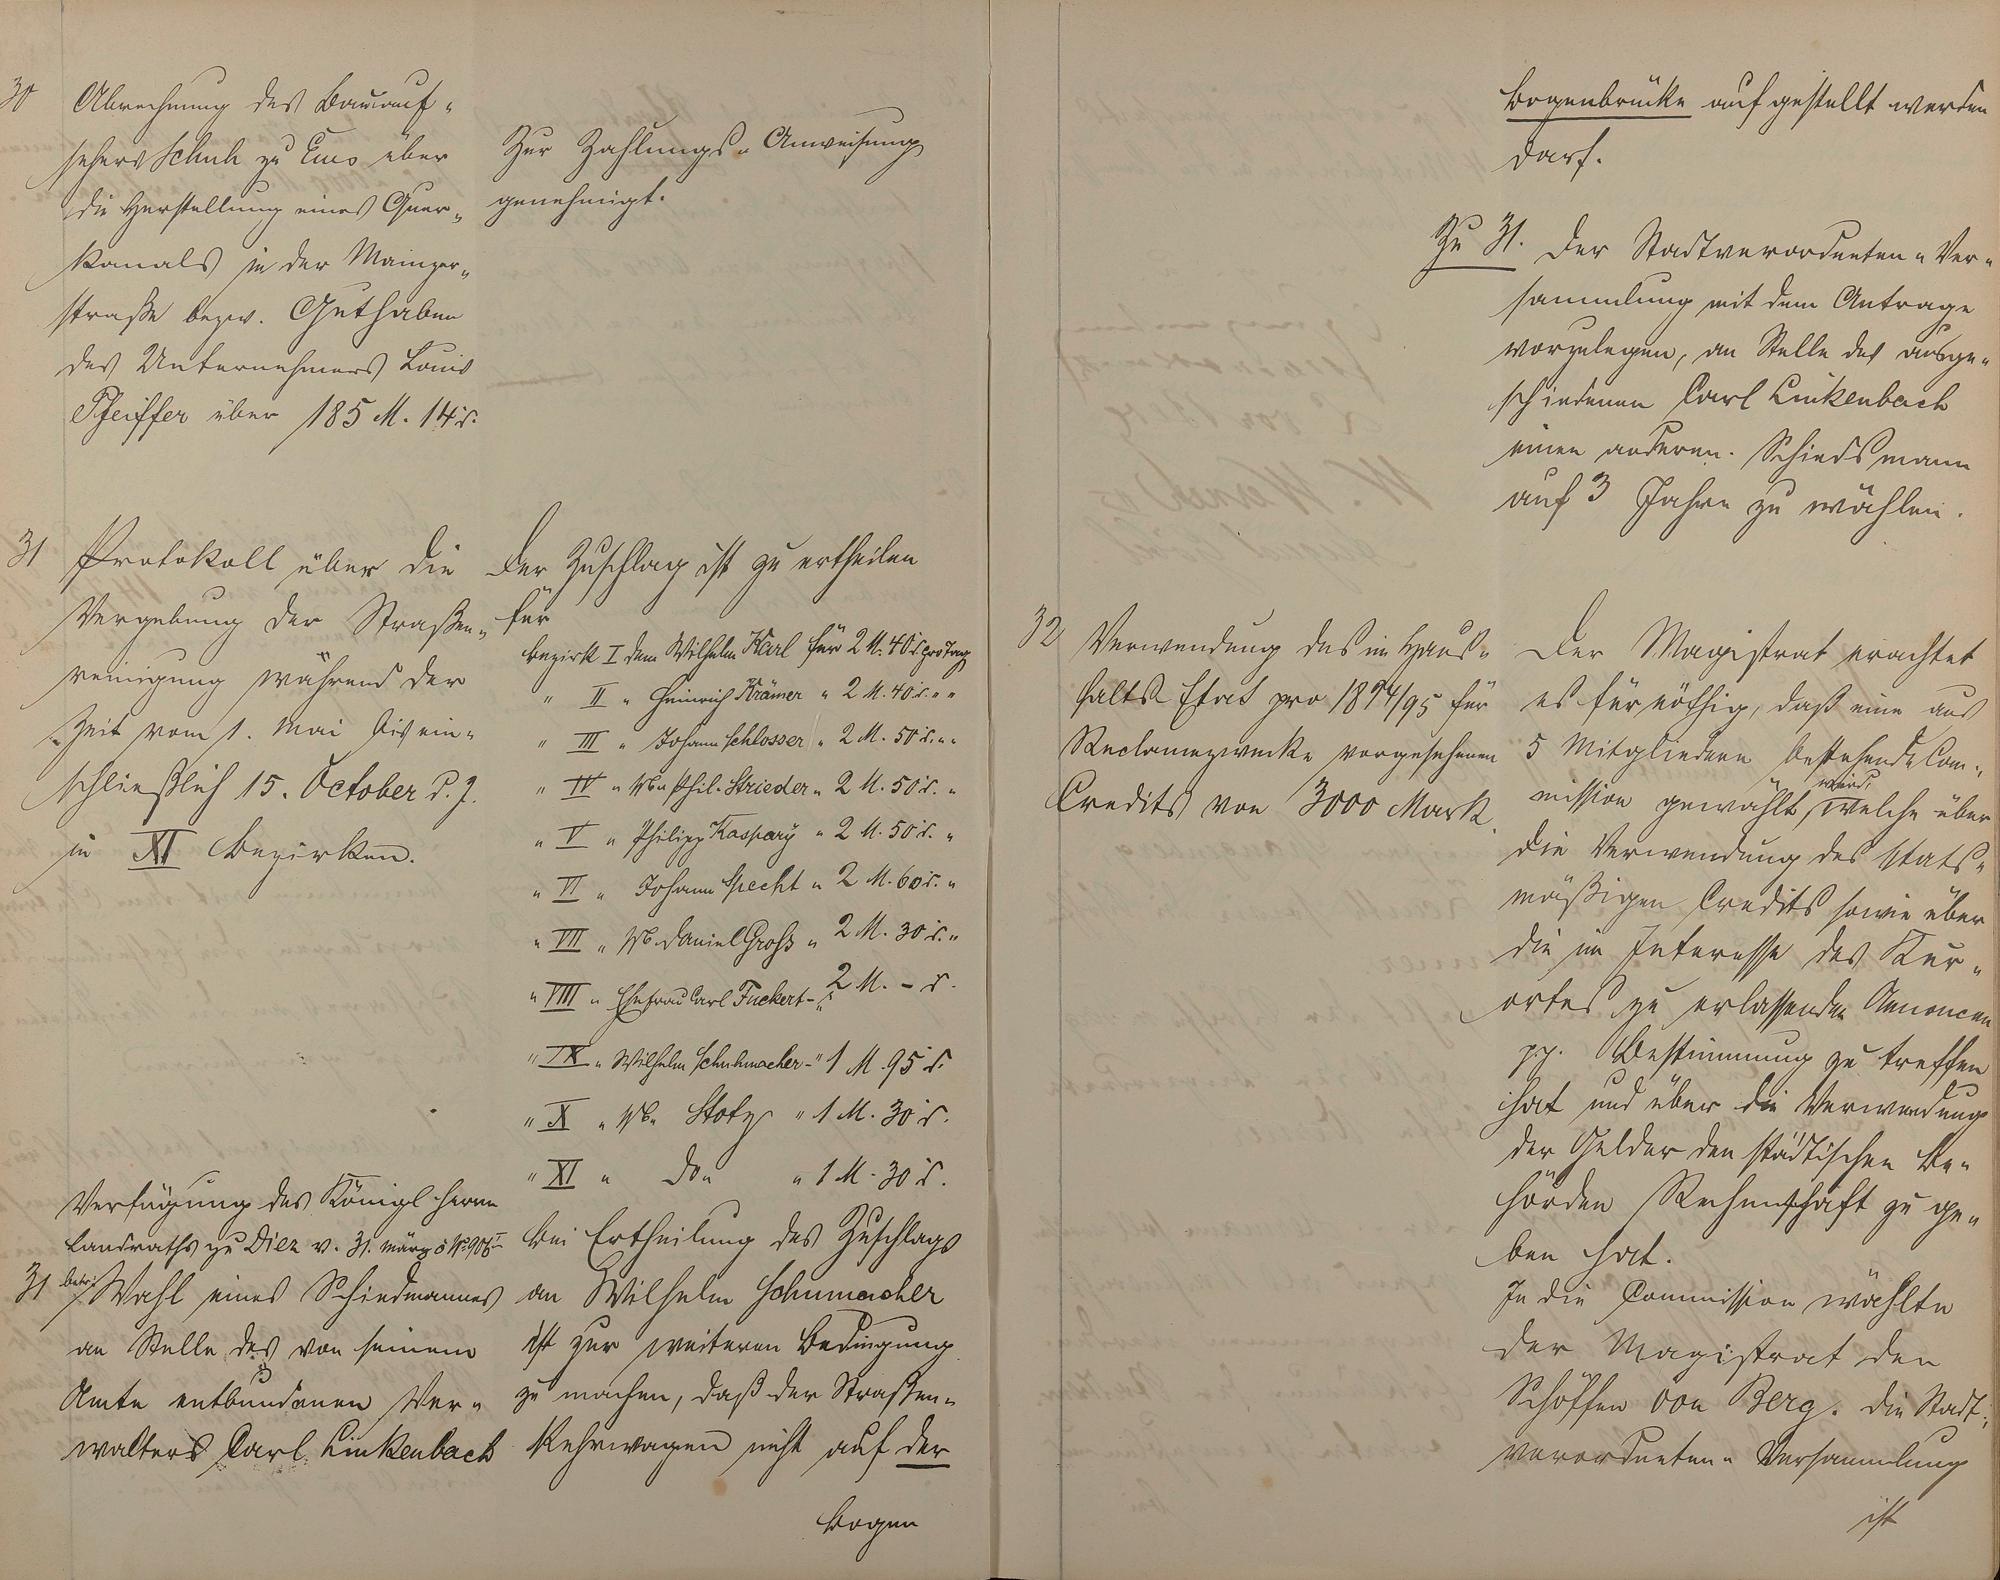 30
Abrechnung des Bauauf-
sehers Schuh zu Ems über
die Herstellung eines Quer-
kanals in der Mainzer-
straße bezw. Guthaben
des Unternehmers Louis
Pfeiffer über 185 M. 14 d.
Zur Zahlungs-Anweisung
genehmigt.
31
Protokoll über die
Vergebung der Straßen-
reinigung während der
Zeit vom 1. Mai bis ein-
schließlich 15. October d. J.
in XI Bezirken.
Der Zuschlag ist zu ertheilen
für
Bezirk I dem Wilhelm Karl für 2 M. 40 d. pro Tag
" II " Heinrich Krämer " 2 M. 40 d. " "
" III " Johann Schlosser " 2 M. 50 d. " "
" IV " Wb. Phil. Strieder " 2 M. 50 d. "
" V " Philipp Kaspary " 2 M. 50 d. "
" VI " Johann Specht " 2 M. 60 d. "
" VII " Wb. Daniel Groß " 2 M. 30 d. "
" VIII " Ehefrau Carl Fuckert - " 2 M. - d.
" IX " Wilhelm Schuhmacher - " 1 M. 95 d.
" X " Wb. Stotz " 1 M. 30 d.
" XI " Do. " 1 M. 30 d.
Bei Ertheilung des Zuschlags
an Wilhelm Schumacher
ist zur weiteren Bedingung
zu machen, daß der Straßen-
kehrwagen nicht auf der
Bogen
Verfügung des Königl Herrn
Landraths zu Diez v. 31. März
31 betr. Wahl eines Schiedmannes
an Stelle des von seinem
Amte entbundenen Ver-
walters Carl Linkenbach
Bogenbrücke aufgestellt werden
darf.
Zu 31. Der Stadtverordneten-Ver-
sammlung mit dem Antrage
vorzulegen, an Stelle des ausge-
schiedenen Carl Linkenbach
einen anderen Schiedsmann
auf 3 Jahre zu wählen.
32
Verwendung des im Haus-
halts Etat pro 1894/95 für
Reclamezwecke vorgesehenen
Credits von 3000 Mark.
Der Magistrat erachtet
es für nöthig, daß eine aus
5 Mitgliedern bestehende Com-
mission gewählt wird, welche über
die Verwendung des etats-
mäßigen Credits sowie über
die im Interesse des Kur-
ortes zu erlassenden Annoncen
pp. Bestimmung zu treffen
hat und über die Verwendung
der Gelder den städtischen Be-
hörden Rechenschaft zu ge-
ben hat.
In die Commission wählte
der Magistrat den
Schöffen von Berg. Die Stadt-
verordneten-Versammlung
ist